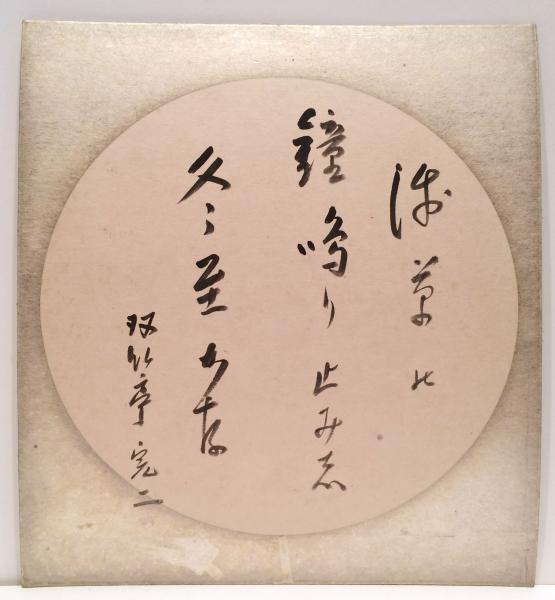 浅草の
鐘鳴り止み志
冬至かな
竹亭 完二